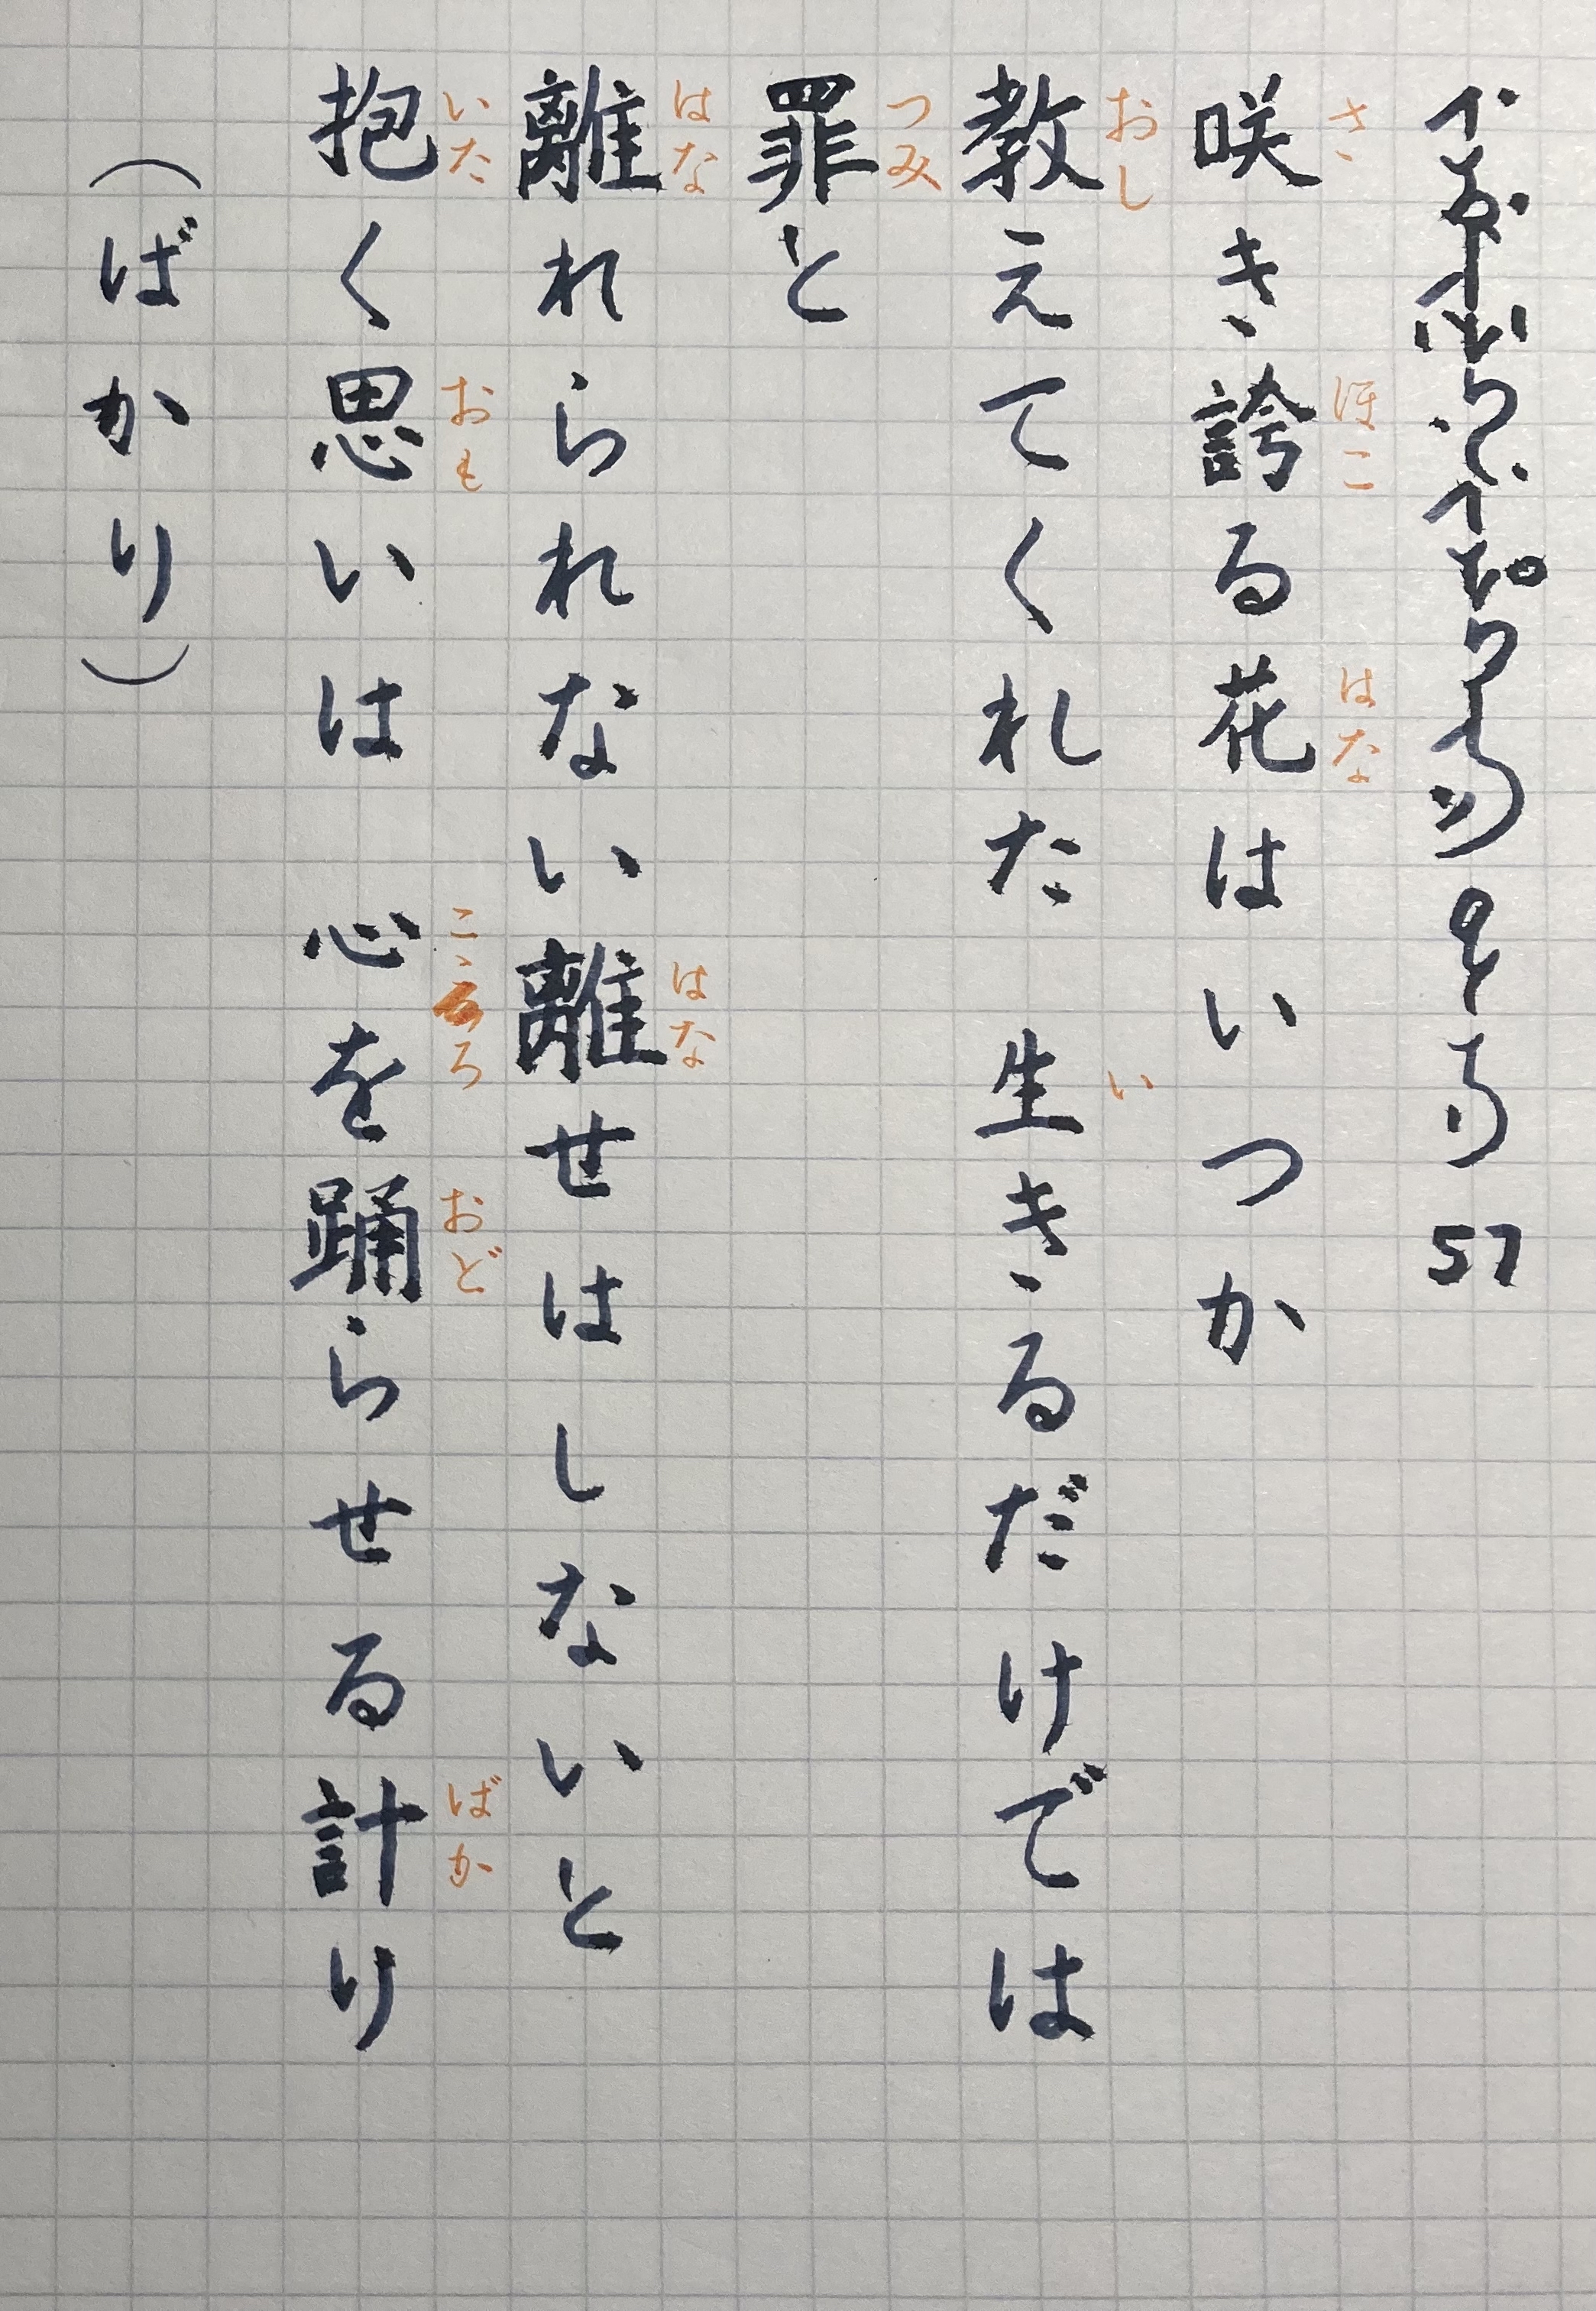 57
咲き誇る花はいつか
教えてくれた 生きるだけでは
罪と
離れられない離せはしないと
抱く思いは 心を踊らせる計り
(ばかり)